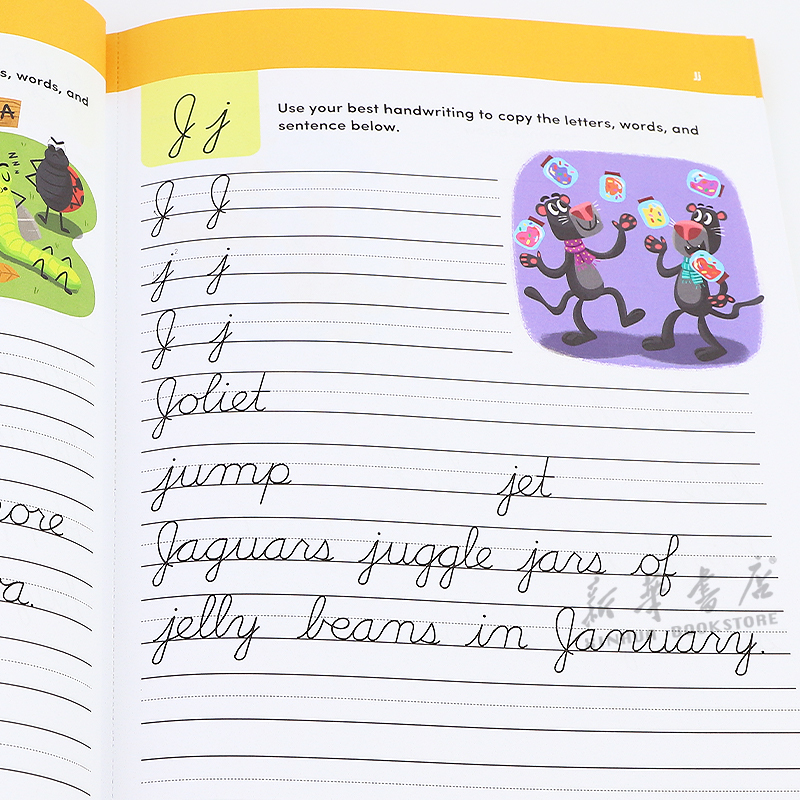 s, words, and
A
ore
a.
JJ
J j
Use your best handwriting to copy the letters, words, and
sentence below.
J J
j j
J j
Joliet
jump jet
Jaguars juggle jars of
jelly beans in January.
新华书店
XINHUA BOOKSTORE